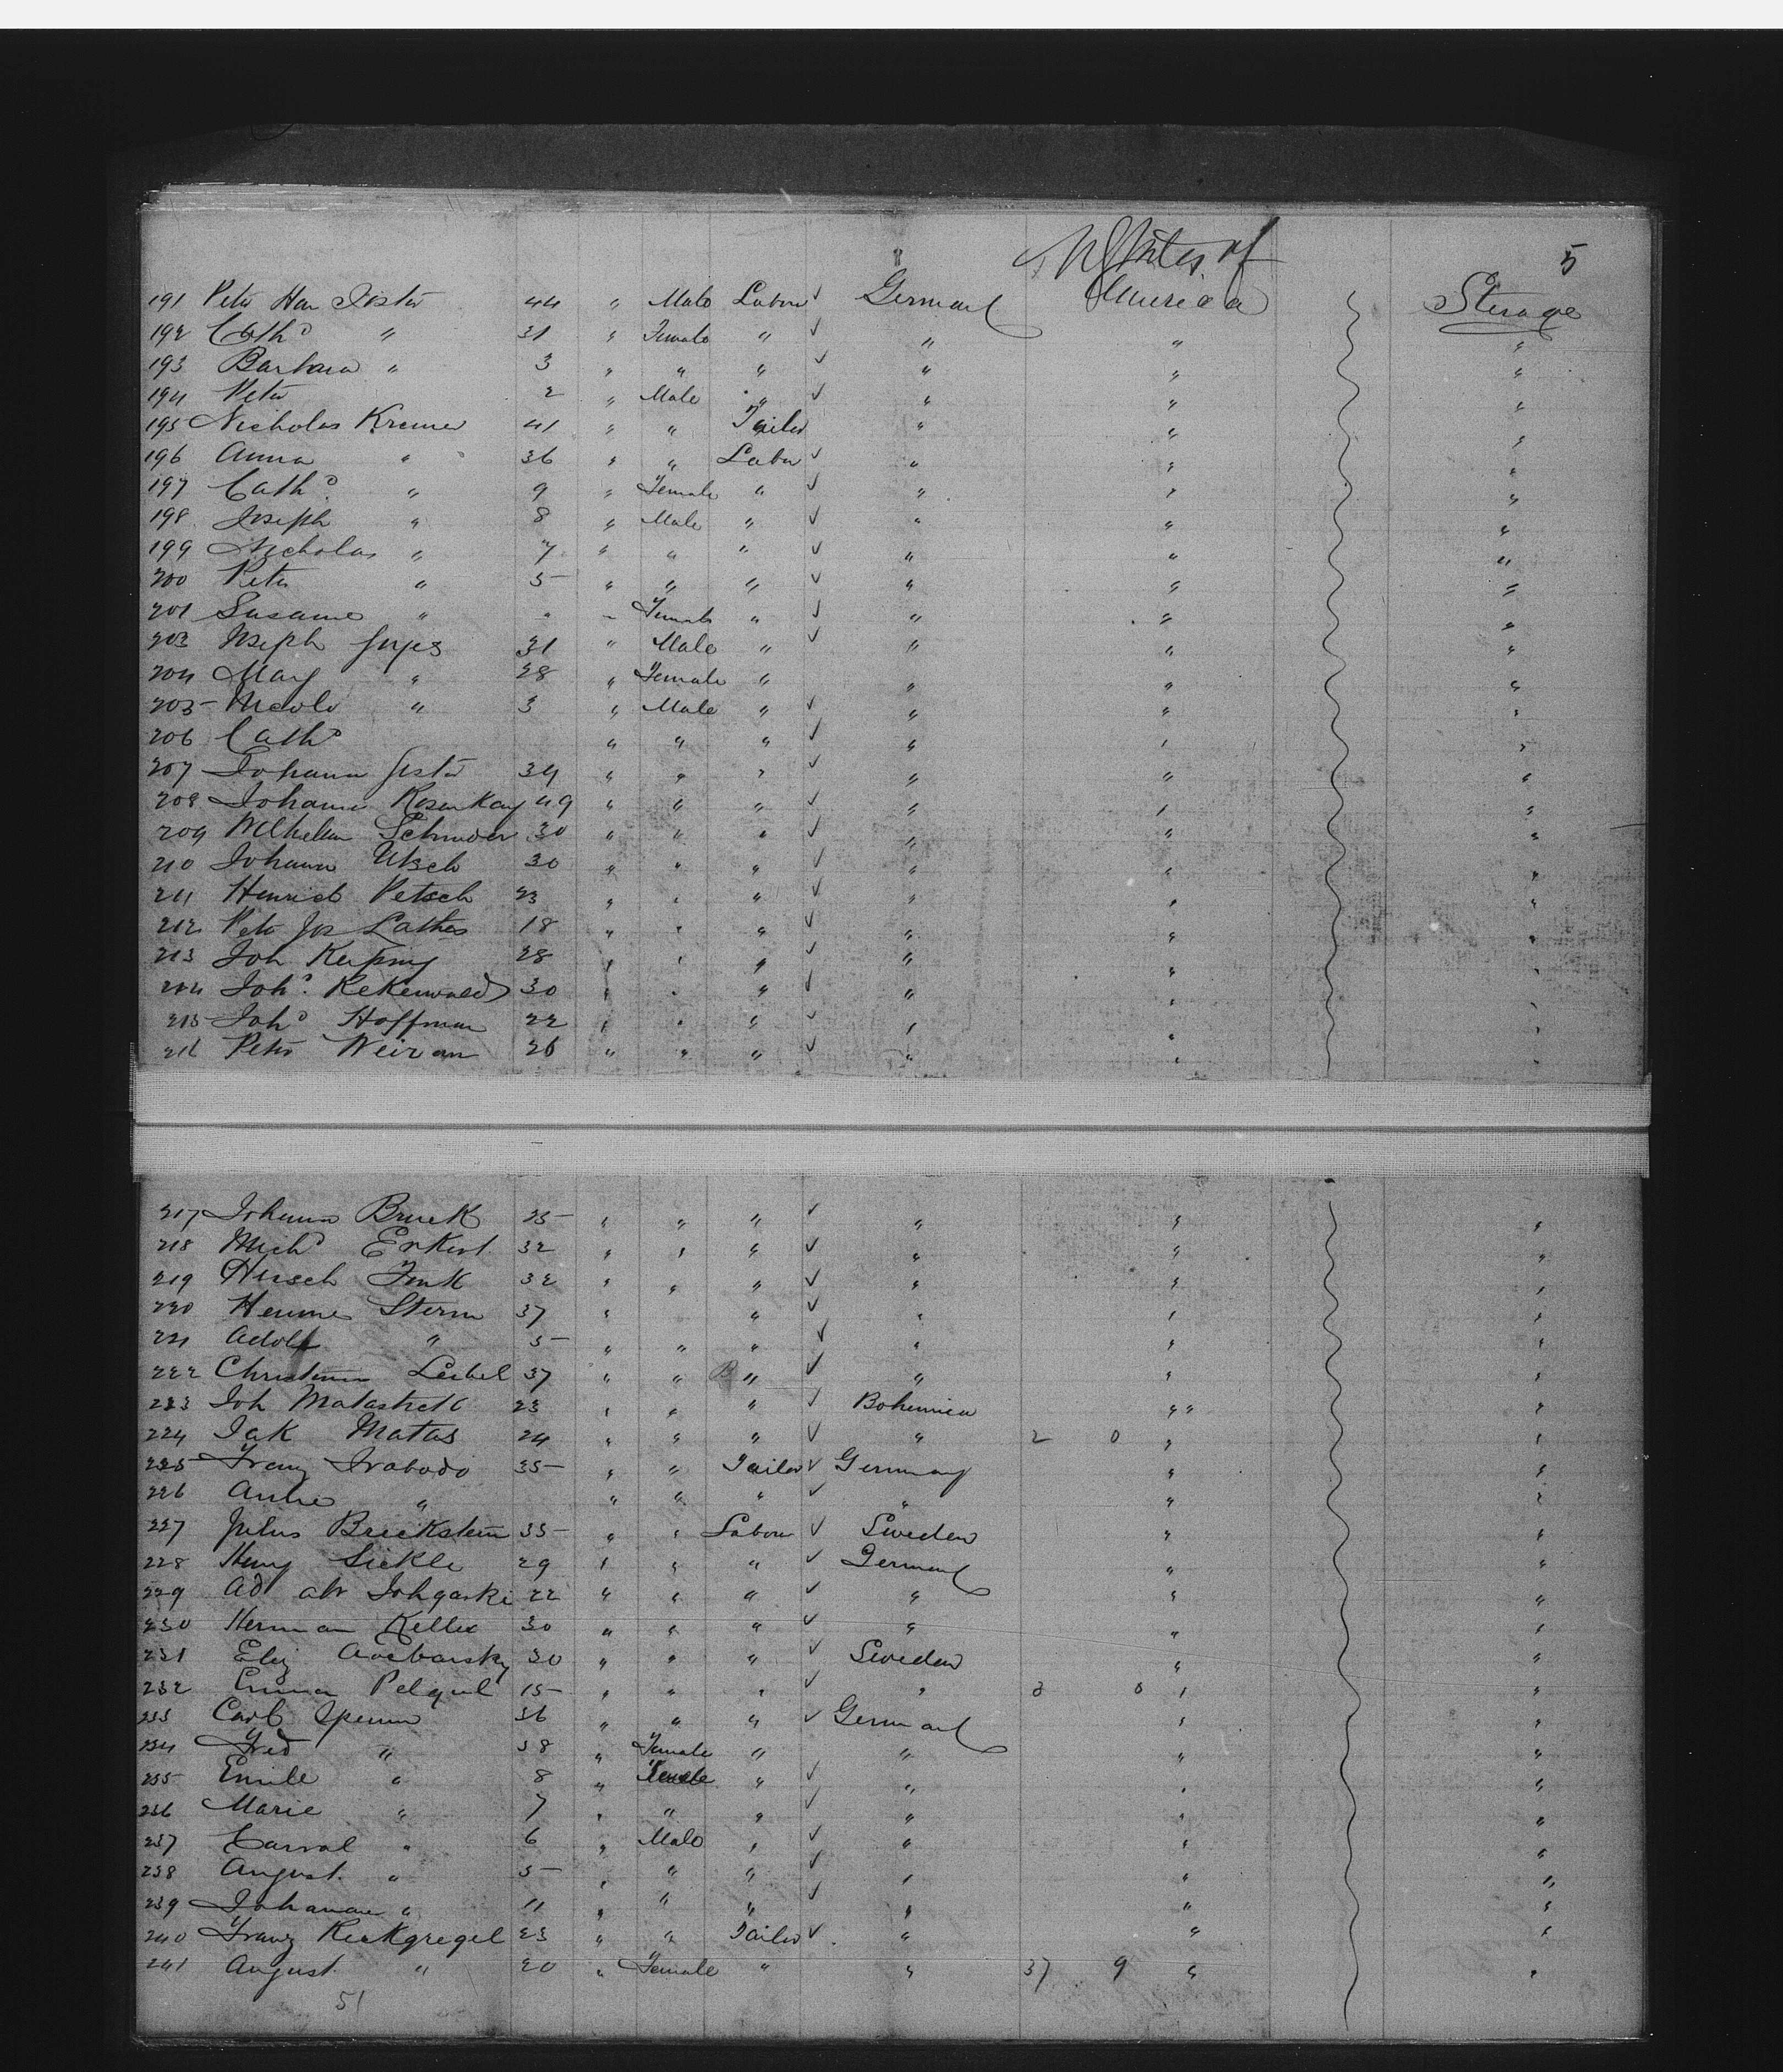 U States of 5
191 Peter Han Jister 44 " Male Labour ✓ Germany America Sterage
192 Cath^a " 31 " Female " ✓ " " "
193 Barbara " 3 " " " ✓ " " "
194 Peter 2 " Male " ✓ " " "
195 Nicholas Kremer 41 " " Tailor " " "
196 Anna " 36 " " Labor ✓ " " "
197 Cath^a " 9 " Female " ✓ " " "
198 Joseph " 8 " Male " ✓ " " "
199 Nicholas " 7 " " " ✓ " " "
200 Peter " 5 " " " ✓ " " "
201 Susanne " " " Female " ✓ " " "
203 Joseph 31 " Male " ✓ " " "
204 Mary " 28 " Female " " " "
205 " 3 " Male " ✓ " " "
206 Cath^a " " " ✓ " " "
207 Johann 34 " " " ✓ " " "
208 Johann Rosenkay 49 " " " ✓ " " "
209 Wilhelm Schnuder 30 " " " ✓ " " "
210 Johann Utsch 30 " " " ✓ " " "
211 Henrich Petsch 23 " " " ✓ " " "
212 Peter Jos Lathes 18 " " " ✓ " " "
213 Joh 28 " " " ✓ " " "
214 Joh^a Kekerwald 30 " " " ✓ " " "
215 Joh^a Hoffman 22 " " " ✓ " " "
216 Peter Weiran 26 " " " ✓ " " "
217 Johann Bruck 25 " " " ✓ " " "
218 Mich^l Enkert 32 " " " ✓ " " "
219 Hirsch Fink 32 " " " ✓ " " "
220 Stern 37 " " ✓ " " "
221 Adolf " 5 " " " ✓ " " "
222 Leibel 37 " " B " ✓ " " "
223 Joh 23 " " " ✓ Bohemia " " "
224 Jak Matas 24 " " " ✓ " 2 0 " "
225 Franz 35 " " Tailor ✓ Germany " "
226 " " " " ✓ " " "
227 Julus Breckstein 35 " " Labour ✓ Sweden " "
228 Henry Sickle 29 " " " ✓ Germany " "
229 Ad 22 " " " ✓ " " "
230 Herman Keller 30 " " " ✓ " " "
231 Eliz 30 " " " ✓ Sweden " "
232 Emma 15 " " " ✓ " 3 0 " "
233 Carl 36 " " " ✓ Germany " "
234 Fred " 38 " Female " " " "
235 Emile " 8 " Female " ✓ " " "
236 Marie " 7 " " " ✓ " " "
237 " 6 " Male " ✓ " " "
238 August " 5 " " " ✓ " " "
239 Johanan " 11 " " " ✓ " " "
240 Franz Keekgregel 23 " " Tailor ✓ " " "
241 August " 20 " Female " " 37 9 " "
51